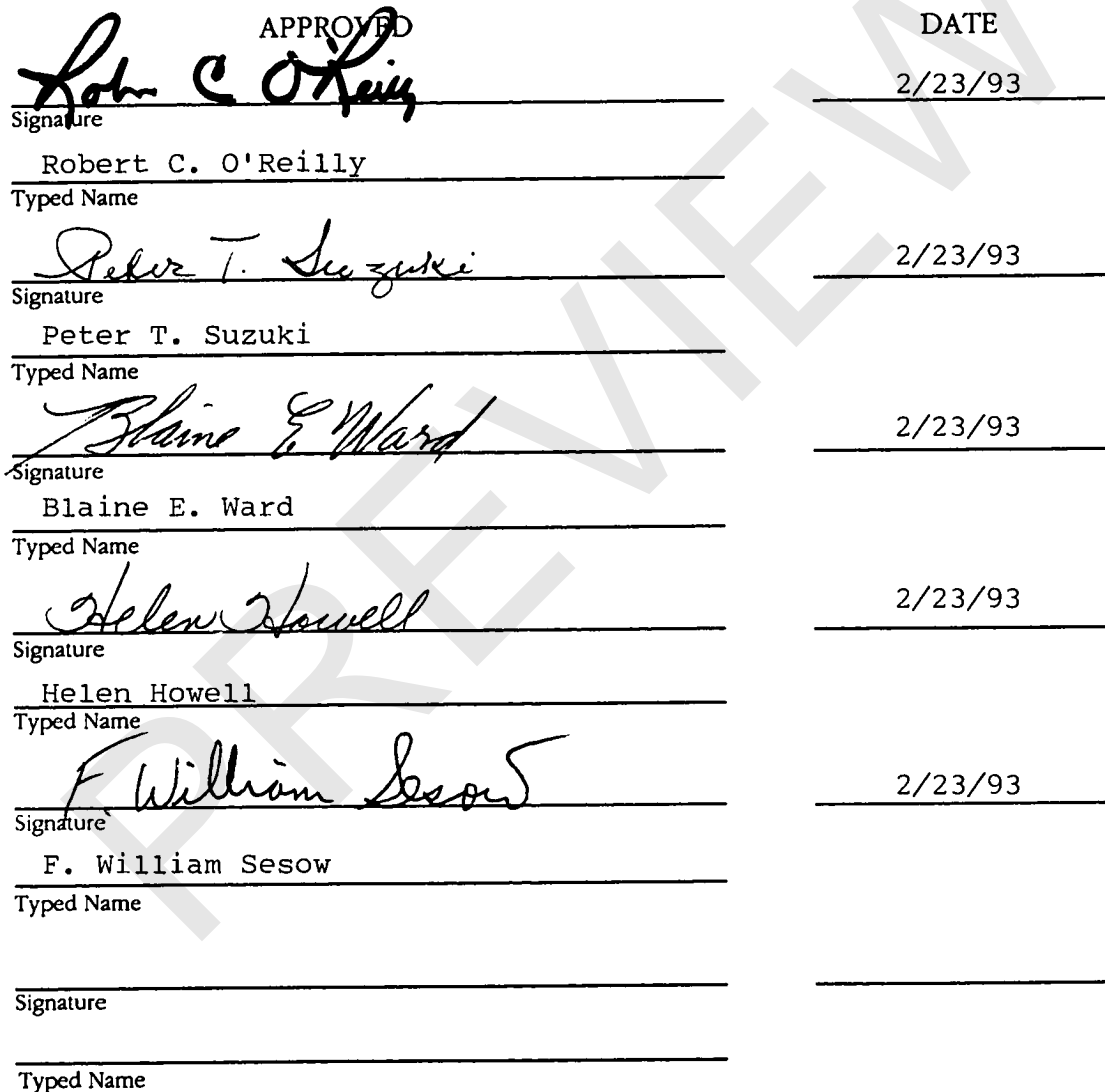 APPROVED DATE
Robt C O'Reilly 2/23/93
Signature
Robert C. O'Reilly
Typed Name
Peter T. Suzuki 2/23/93
Signature
Peter T. Suzuki
Typed Name
Blaine E. Ward 2/23/93
Signature
Blaine E. Ward
Typed Name
Helen Howell 2/23/93
Signature
Helen Howell
Typed Name
F. William Sesow 2/23/93
Signature
F. William Sesow
Typed Name
Signature
Typed Name
PREVIEW